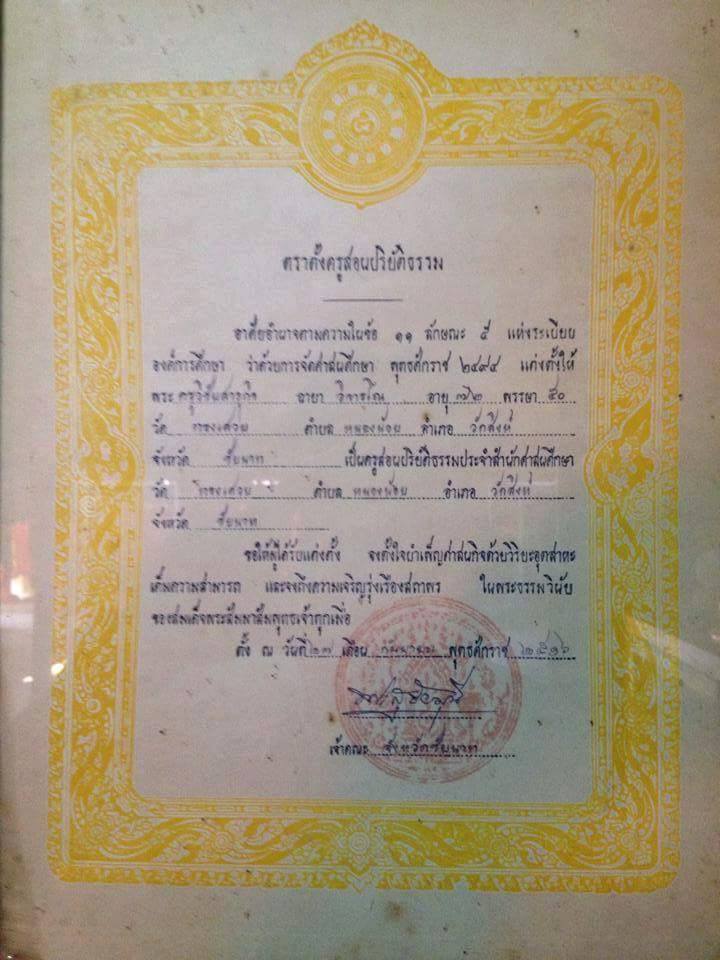 ตราตั้งครูสอนปริยัติธรรม
อาศัยอำนาจตามความในข้อ ๑๑ ลักษณะ ๕ แห่งระเบียบ
องค์การศึกษา ว่าด้วยการจัดศาสนศึกษา พุทธศักราช ๒๔๙๔ แต่งตั้งให้
พระ ครูวิชัยสาธุกิจ ฉายา อายุ ๗๒ พรรษา ๕๐
วัด ตำบล หนองน้อย อำเภอ วัดสิงห์
จังหวัด ชัยนาท เป็นครูสอนปริยัติธรรมประจำสำนักศาสนศึกษา
วัด ตำบล หนองน้อย อำเภอ วัดสิงห์
จังหวัด ชัยนาท
ขอให้ผู้ได้รับแต่งตั้ง จงตั้งใจบำเพ็ญศาสนกิจด้วยวิริยะอุตสาหะ
เต็มความสามารถ และจงถึงความเจริญรุ่งเรืองสถาพร ในพระธรรมวินัย
ของสมเด็จพระสัมมาสัมพุทธเจ้าทุกเมื่อ
ตั้ง ณ วันที่ ๒๗ เดือน กุมภาพันธ์ พุทธศักราช ๒๕๑๖
เจ้าคณะ จังหวัดชัยนาท